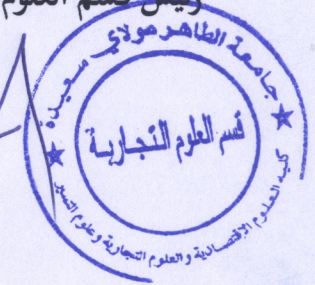 رئيس قسم العلوم
جامعة الطاهر مولاي سعيدة
قسم العلوم التجارية
كلية العلوم الاقتصادية والعلوم التجارية وعلوم التسيير